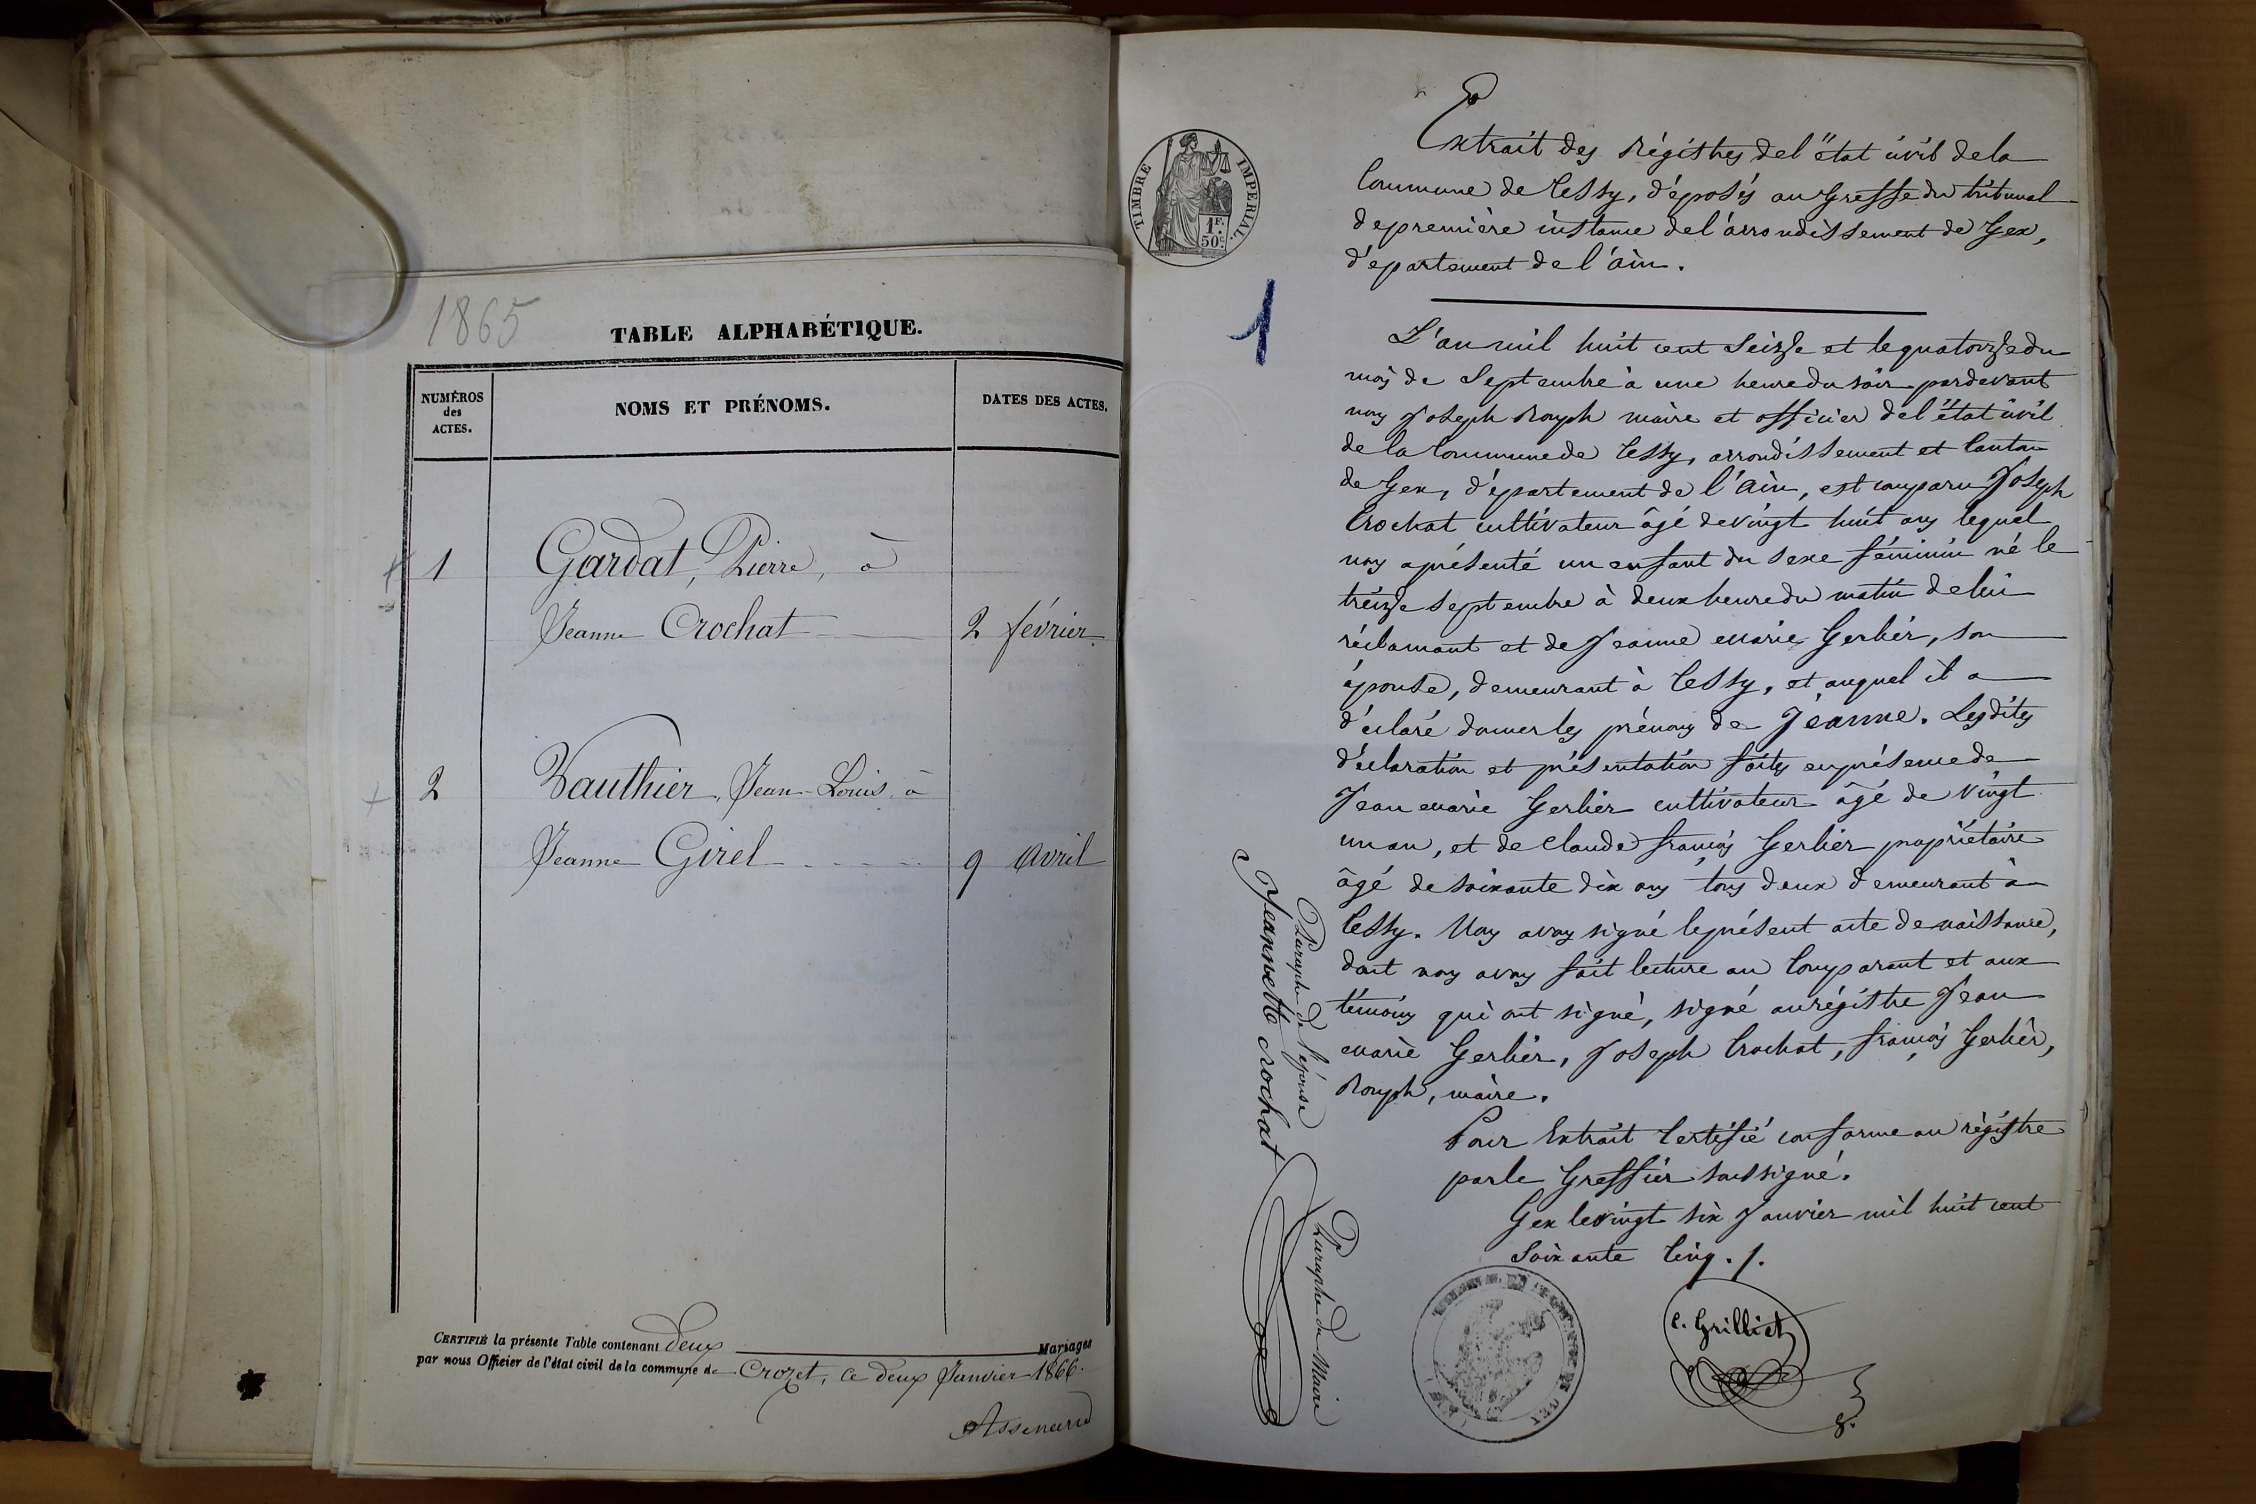 1865
TABLE ALPHABÉTIQUE.
NUMÉROS des ACTES.
NOMS ET PRÉNOMS.
DATES DES ACTES.
1 Gardat, Pierre, à
Jeanne Crochat 2 février.
2 Vauthier, Jean-Louis, à
Jeanne Girel 9 Avril
CERTIFIÉ la présente Table contenant deux Mariages
par nous Officier de l'état civil de la commune de Crozet, ce deux Janvier 1866.
TIMBRE IMPÉRIAL.
1F. 50c.
1
Extrait des régistres de l'état civil de la
Commune de Cessy, déposés au Greffe du tribunal
de première instance de l'arrondissement de Gex,
département de l'ain.
L'an mil huit cent seizse et le quatorzse du
mois de Septembre à une heure du soir pardevant
nous Joseph Rouph maire et officier de l'état civil
de la Commune de Cessy, arrondissement et Canton
de Gex, département de l'Ain, est comparu Joseph
Crochat cultivateur âgé de vingt huit ans lequel
nous a présenté un enfant du sexe féminin né le
treizse septembre à deux heure du matin de lui
réclamant et de Jeanne Marie Gerlier, son
épouse, demeurant à Cessy, et auquel il a
déclaré donner les prénoms de Jeanne. Lesdites
déclaration et présentation faites en présence de
Jean Marie Gerlier cultivateur âgé de vingt
un an, et de Claude françois Gerlier propriétaire
âgé de soixante dix ans tous deux demeurant à
Cessy. Nous avons signé le présent acte de naissance,
dont nous avons fait lecture au Comparant et aux
témoins qui ont signé, signé au régistre Jean
Marie Gerlier, Joseph Crochat, françois Gerlier,
Rouph, maire.
Pour Extrait Certifié conforme au régistre
par le Greffier soussigné.
Gex le vingt six Janvier mil huit cent
Soixante Cinq ./.
C. Grilliet
Paraphe de l'épouse
Jeannette crochat
Paraphe du Maire